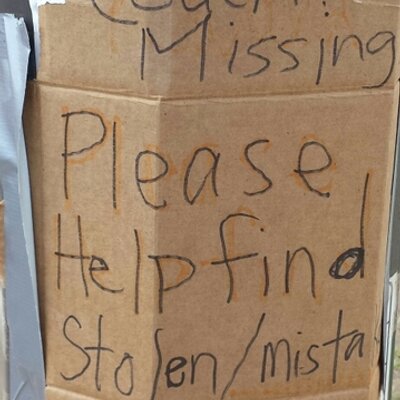 Missing
Please
Help find
Stolen/mista